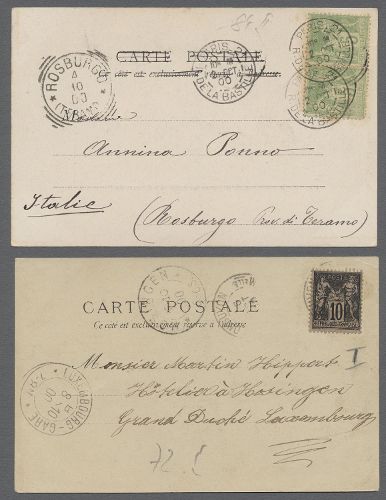 84.II
CARTE POSTALE
Ce côté est exclusivement réservé à l'adresse.
ROSBURGO
(TERAMO)
4
10
00
PARIS
R. DE LA BASTILLE
Annina Ponno
Italie
(Rosburgo Prov. di Teramo)
CARTE POSTALE
Ce coté est exclusivement réservé à l'adresse
10
Monsieur Martin Hippert
Hôtelier à Hosingen
Grand Duché Luxembourg
I
LUXEMBOURG-GARE
72.I